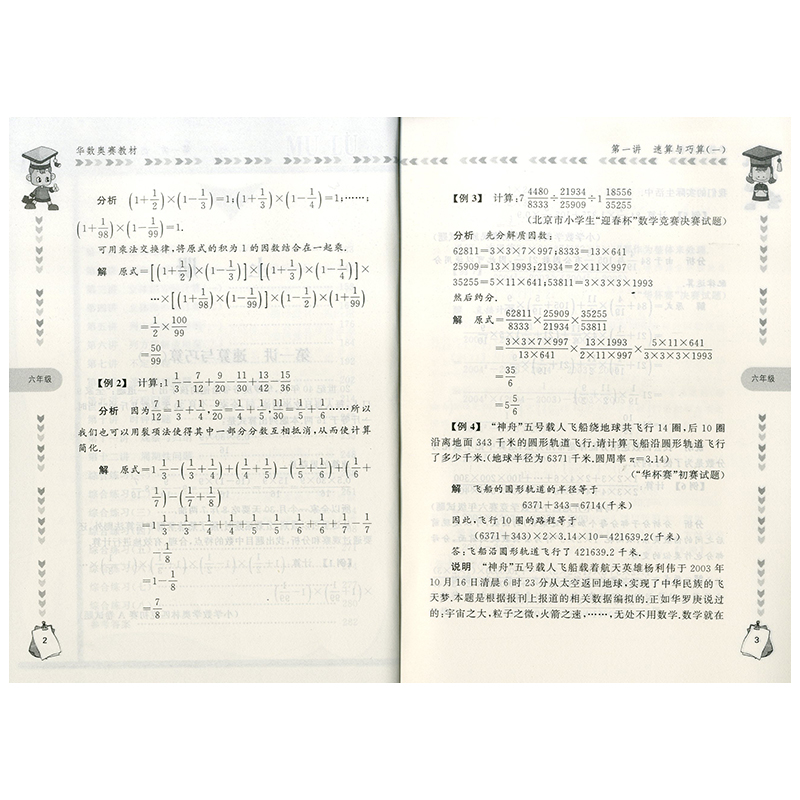 华数奥赛教材
分析 (1+1/2)×(1-1/3)=1;(1+1/3)×(1-1/4)=1;……;
(1+1/98)×(1-1/99)=1.
可用乘法交换律,将原式的积为1的因数结合在一起乘.
解 原式=[(1+1/2)×(1-1/3)]×[(1+1/3)×(1-1/4)]×
…×[(1+1/98)×(1-1/99)]×(1-1/2)×(1+1/99)
=1/2×100/99
=50/99
【例2】 计算:1 1/3-7/12+9/20-11/30+13/42-15/36
分析 因为7/12=1/3+1/4,9/20=1/4+1/5,11/30=1/5+1/6……所以
我们也可以用裂项法使得其中一部分分数互相抵消,从而使计算
简化.
解 原式=1 1/3-(1/3+1/4)+(1/4+1/5)-(1/5+1/6)+(1/6+
1/7)-(1/7+1/8)
=1+1/3-1/3-1/4+1/4+1/5-1/5-1/6+1/6+1/7-1/7
-1/8
=1-1/8
=7/8
六年级
2
第一讲 速算与巧算(一)
【例3】 计算:7 4480/8333÷21934/25909÷1 18556/35255
(北京市小学生“迎春杯”数学竞赛决赛试题)
分析 先分解质因数:
62811=3×3×7×997;8333=13×641;
25909=13×1993;21934=2×11×997
35255=5×11×641;53811=3×3×3×1993
然后约分.
解 原式=62811/8333×25909/21934×35255/53811
=3×3×7×997/13×641×13×1993/2×11×997×5×11×641/3×3×3×1993
=35/6
=5 5/6
【例4】 “神舟”五号载人飞船绕地球共飞行14圈,后10圈
沿离地面343千米的圆形轨道飞行.请计算飞船沿圆形轨道飞行
了多少千米.(地球半径为6371千米.圆周率π=3.14)
(“华杯赛”初赛试题)
解 飞船的圆形轨道的半径等于
6371+343=6714(千米)
因此,飞行10圈的路程等于
(6371+343)×2×3.14×10=421639.2(千米)
答:飞船沿圆形轨道飞行了421639.2千米.
说明 “神舟”五号载人飞船载着航天英雄杨利伟于2003年
10月16日清晨6时23分从太空返回地球,实现了中华民族的飞
天梦.本题是根据报刊上报道的相关数据编拟的.正如华罗庚说过
的:宇宙之大,粒子之微,火箭之速,……,无处不用数学.数学就在
六年级
3